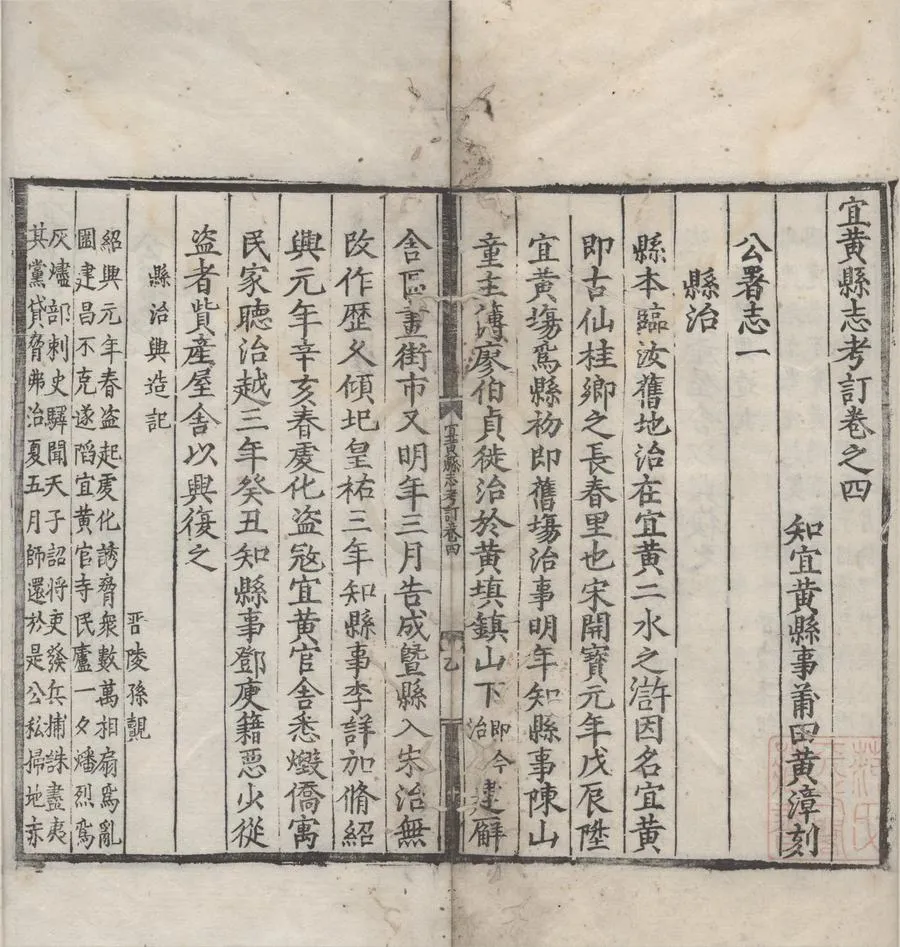 宜黃縣志考訂卷之四
知宜黃縣事莆田黃漳刻
公署志一
縣治
縣本臨汝舊地治在宜黃二水之滸因名宜黃
即古仙桂鄉之長春里也宋開寶元年戊辰陞
宜黃塲爲縣初即舊塲治事明年知縣事陳山
童主簿廖伯貞徙治於黃填鎮山下即今治建廨
宜黃縣志考訂卷四
乙
舍區畫街市又明年三月告成暨縣入宋治無
改作歷久傾圯皇祐三年知縣事李詳加脩紹
興元年辛亥春虔化盗宼宜黃官舍悉燬僑寓
民家聽治越三年癸丑知縣事鄧庾籍惡少從
盗者貲產屋舍以興復之
縣治興造記
晋陵孫覿
紹興元年春盗起虔化誘脅衆數萬相扇爲亂
圍建昌不克遂䧟宜黃官寺民廬一夕燔烈爲
灰燼部刺史驛聞天子詔將吏發兵捕誅盡夷
其黨貸脅弗治夏五月師還於是公私掃地赤